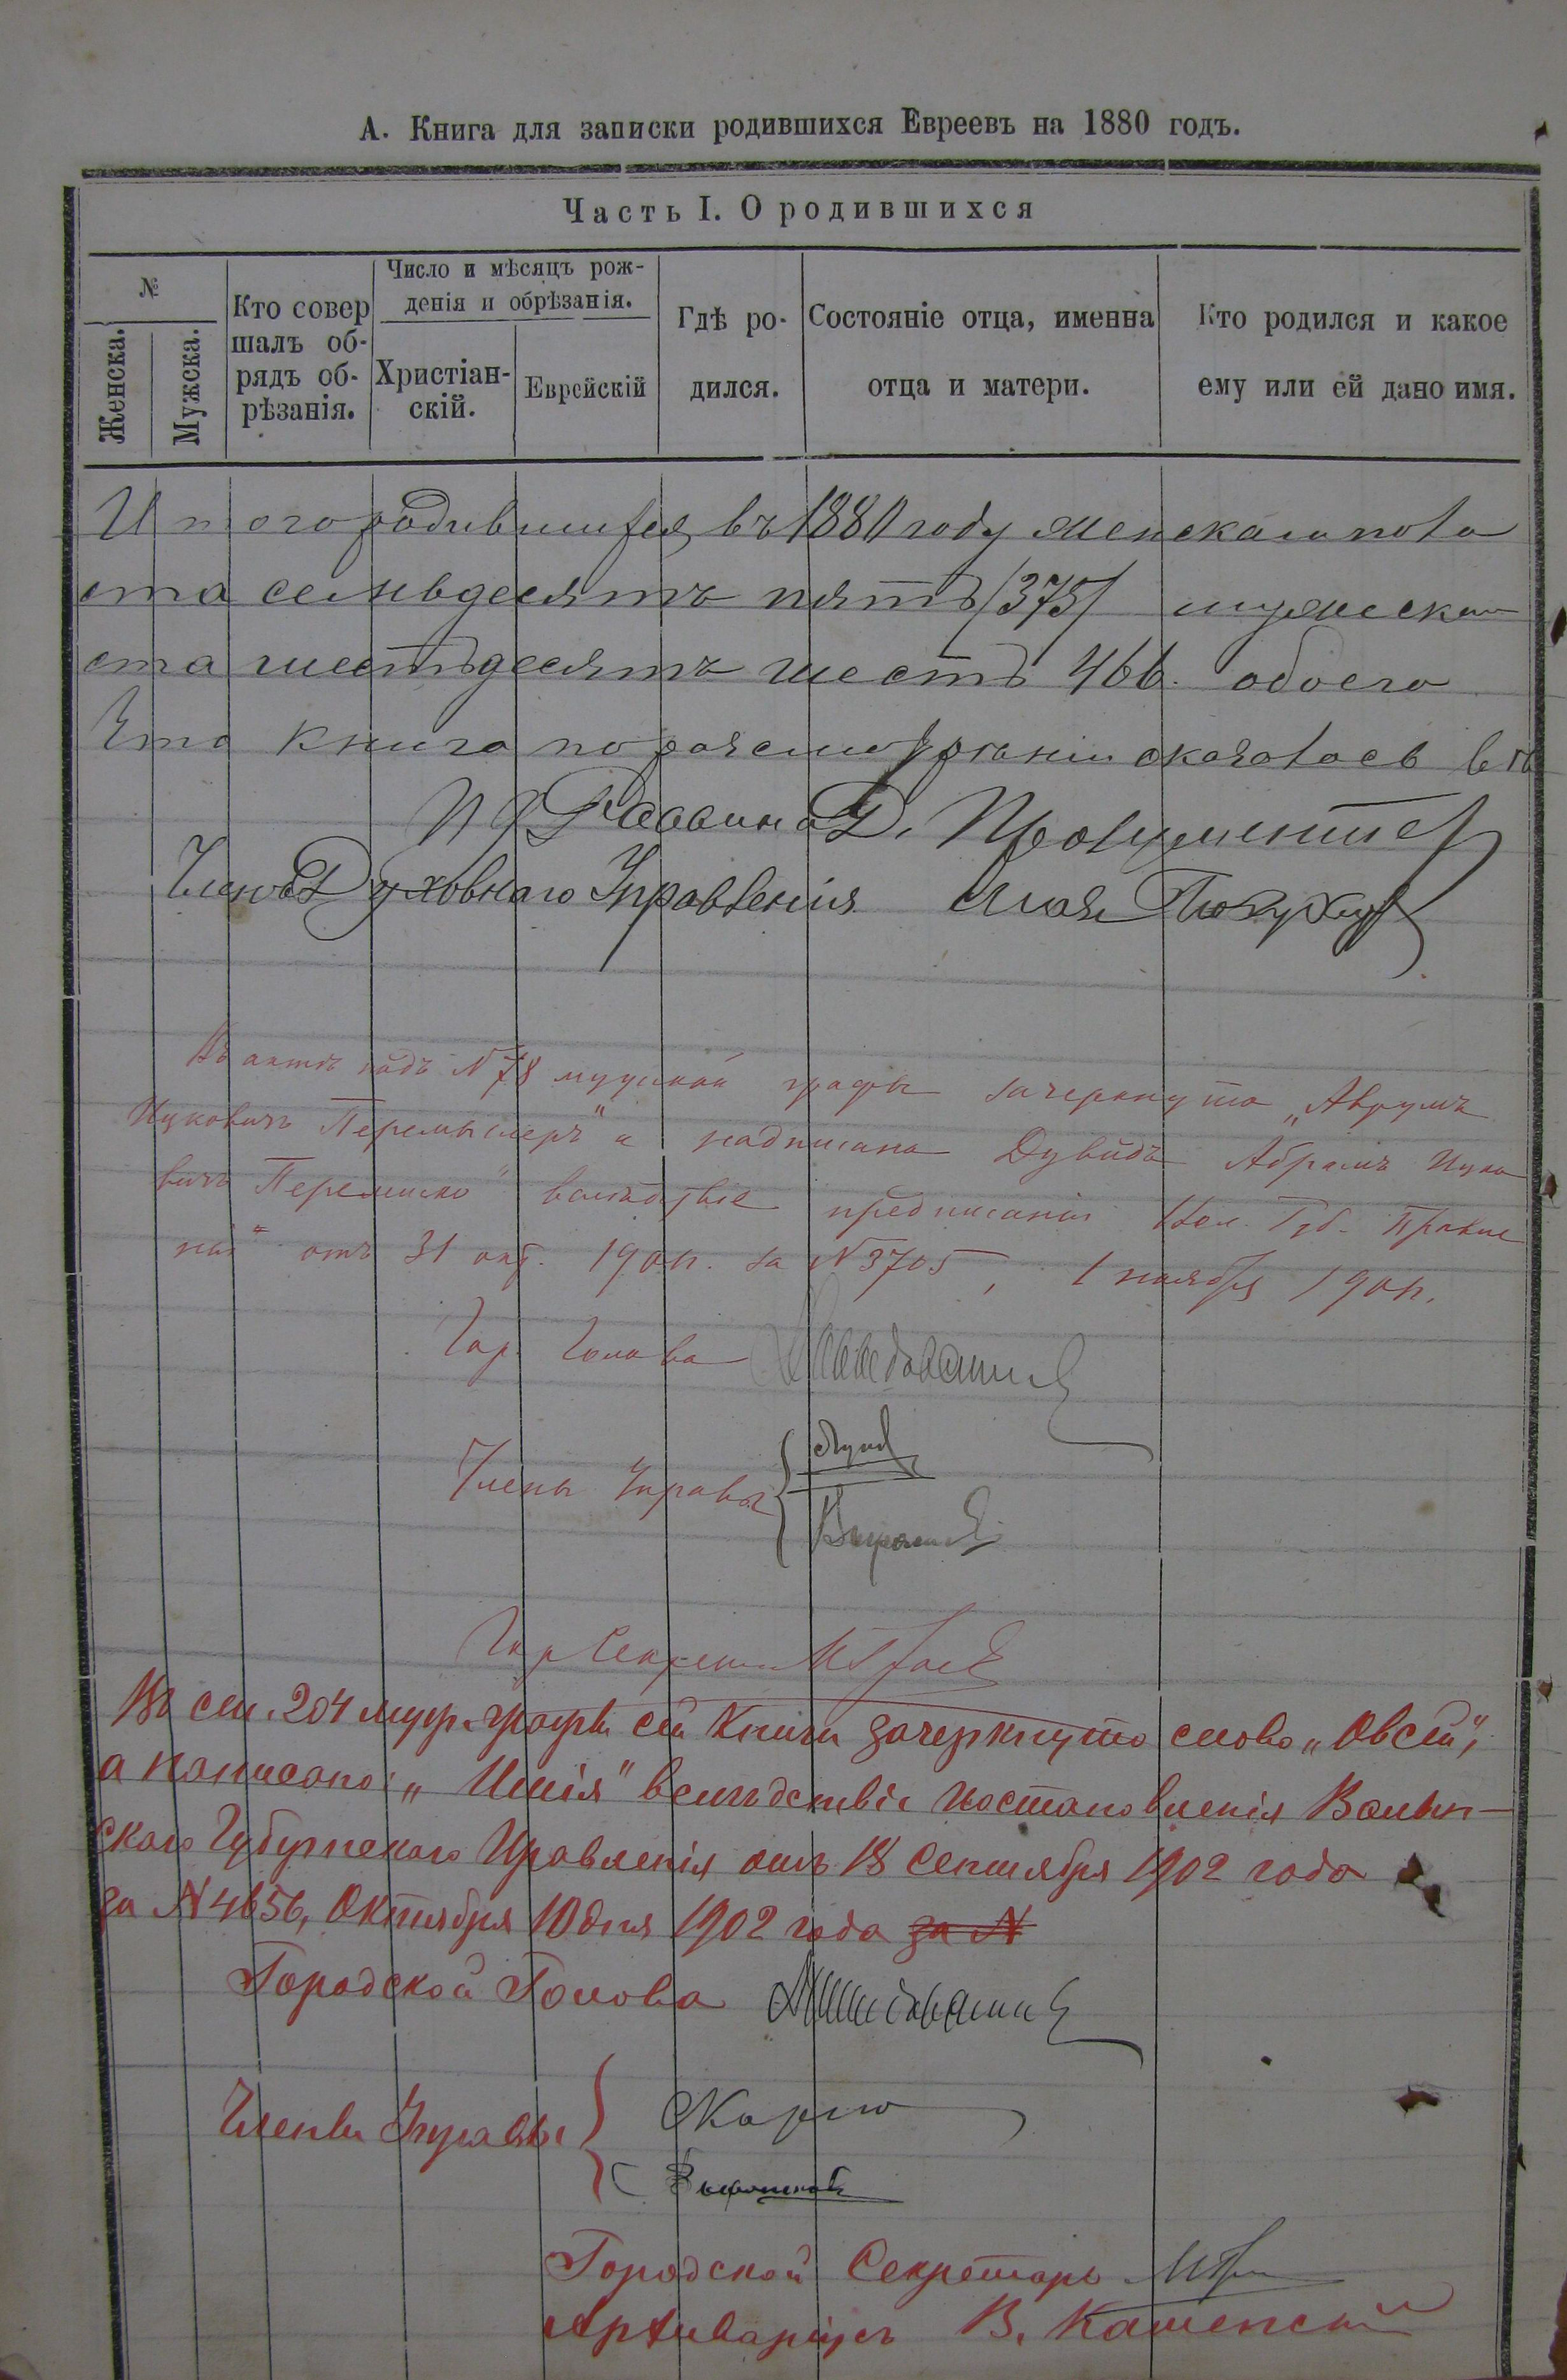 А. Книга для записки родившихся Евреевъ на 1880 годъ.
Часть I. О родившихся
№
Женска.
Мужска.
Кто совер
шалъ об-
рядъ об-
рѣзанія.
Число и мѣсяцъ рож-
денія и обрѣзанія.
Христіан-
скій.
Еврейскій
Гдѣ ро-
дился.
Состояніе отца, именна
отца и матери.
Кто родился и какое
ему или ей дано имя.
Итого родившихся въ 1880 году женскаго пола
ста семьдесятъ пять /375/ мужска
ста шестьдесятъ шесть 466. обоего
Эта книга по разсмотрѣніи оказалось
Раввина
Членъ Духовнаго Управленія
Въ актѣ подъ N 78 мужской графы зачеркнуто „Аврумъ
Ицковичъ Перемышлеръ" и надписано Дувидъ Абрамъ Ицко
вичъ вслѣдствіе предписанія Вол. Губ. Правле
нія отъ 31 окт. за N 3705, 1 ноября
Гор. Голова
Члены Управы
Гор Секретарь
Въ ст. 204 муж. графы сей Книги зачеркнуто слово „Овсей",
а написано: „ Ишія" вслѣдствіе постановленія Волын-
скаго Губернскаго Правленія отъ 18 Сентября 1902 года
за N 4656, Октября 10 дня 1902 года за N
Городской Голова
Члены Управы
Городской Секретарь
Архиваріусъ В. Каменскій